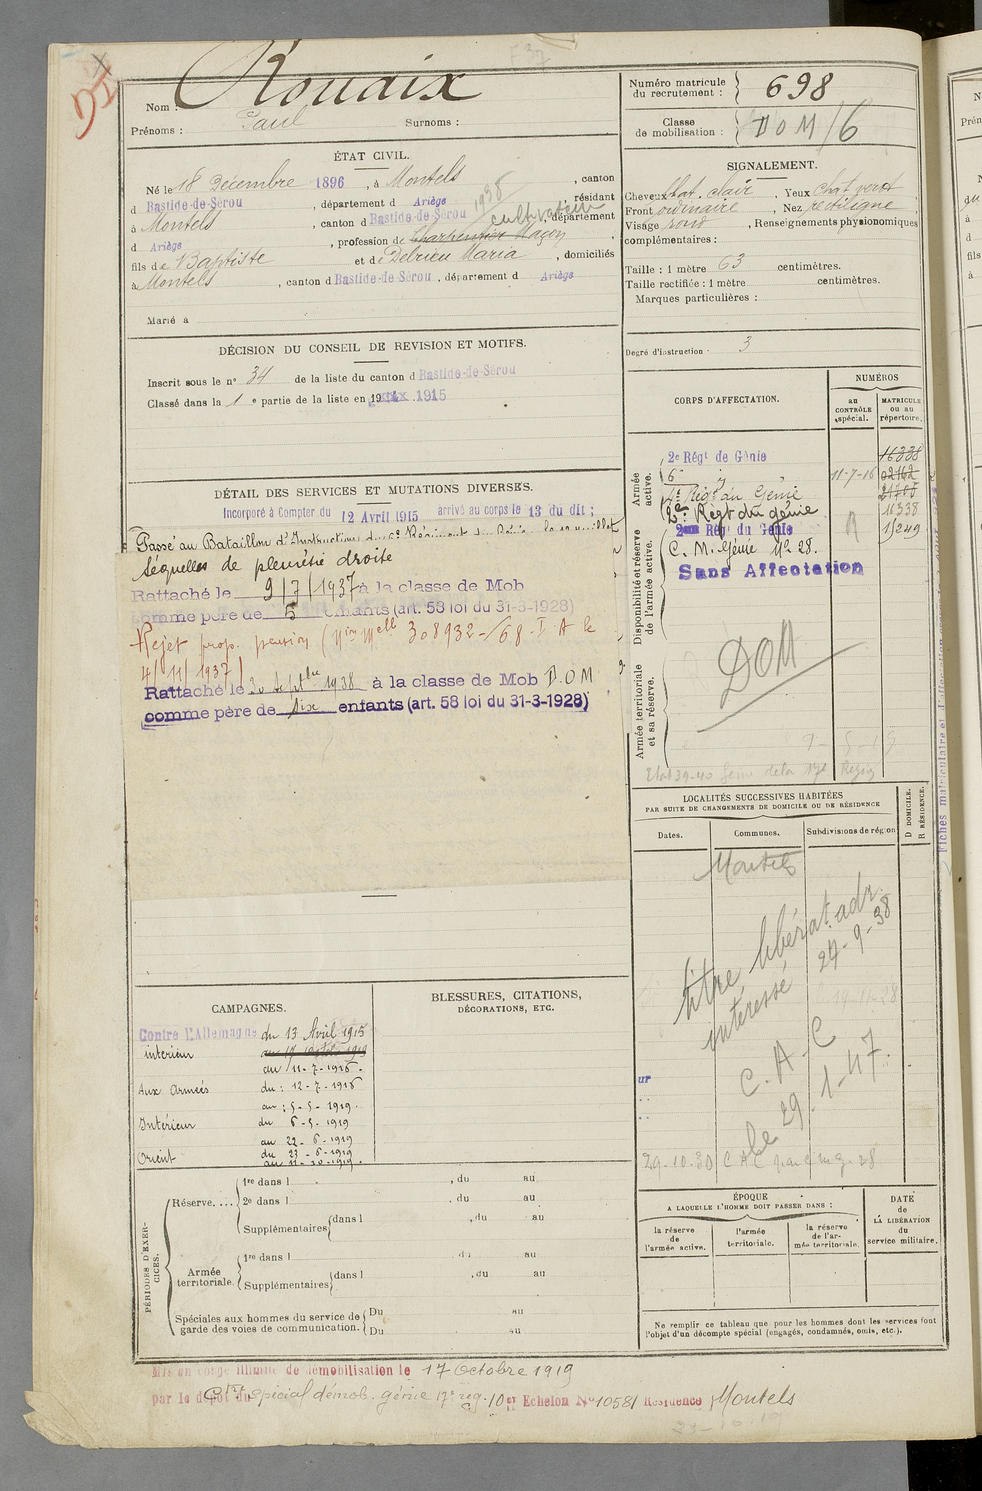 Nom : Rouaix
Prénoms : Paul Surnoms :
Numéro matricule du recrutement : 698
Classe de mobilisation : DOM/6
ÉTAT CIVIL.
Né le 18 Décembre 1896, à Montels, canton
d Bastide-de-Sérou, département d Ariège, résidant
à Montels, canton d Bastide-de-Sérou département
1938 cultivateur
d Ariège, profession de Charpentier Maçon,
fils de Baptiste et de Delrieu Maria, domiciliés
à Montels, canton d Bastide-de-Sérou, département d Ariège
Marié à
SIGNALEMENT.
Cheveux chat. clair, Yeux chât. vert
Front ordinaire, Nez rectiligne
Visage rond, Renseignements physionomiques
complémentaires :
Taille : 1 mètre 63 centimètres.
Taille rectifiée : 1 mètre centimètres.
Marques particulières :
Degré d'instruction : 3
DÉCISION DU CONSEIL DE REVISION ET MOTIFS.
Inscrit sous le n° 34 de la liste du canton d Bastide-de-Sérou
Classé dans la 1 e partie de la liste en 19 1915
DÉTAIL DES SERVICES ET MUTATIONS DIVERSES.
Incorporé à Compter du 12 Avril 1915 arrivé au corps le 13 du dit ;
Passé au Bataillon d'Instruction du
Séquelles de pleurésie droite
Rattaché le 9/7/1937 à la classe de Mob
comme père de 5 enfants (art. 58 loi du 31-3-1928)
Rejet prop. pension (Min 308932-/68-I-A le
4/11/1937)
Rattaché le 30 Septbre 1938 à la classe de Mob D.O.M
comme père de six enfants (art. 58 loi du 31-3-1928)
CORPS D'AFFECTATION.
NUMÉROS
au CONTRÔLE spécial.
MATRICULE ou au répertoire.
Armée active.
2e Régt de Génie
16338
6e
11-7-16
02162
1er Régt du Génie
21705
2e Regt du génie
16338
Disponibilité et réserve de l'armée active.
2ème Régt du Génie
R
15249
C. M. Génie No 28.
Sans Affectation
Armée territoriale et sa réserve.
DOM
LOCALITÉS SUCCESSIVES HABITÉES
PAR SUITE DE CHANGEMENTS DE DOMICILE OU DE RÉSIDENCE
Dates. Communes. Subdivisions de région
D DOMICILE.
R RÉSIDENCE.
Montels
titre libérat. adr.
intéressé 24-9-38
C.A.C
le 29.1-47.
29-10-30
CAMPAGNES.
Contre l'Allemagne du 13 Avril 1915
intérieur
au 11-7-1916.
Aux Armées du : 12-7-1916
au : 5-5-1919.
Intérieur du 6-5-1919
au 22-6-1919
Orient du 23-6-1919
au 11-10-1919.
BLESSURES, CITATIONS,
DÉCORATIONS, ETC.
PÉRIODES D'EXERCICES.
Réserve. . . .
1re dans l , du au
2e dans l , du au
Supplémentaires dans l , du au
Armée territoriale.
1re dans l , du au
Supplémentaires dans l , du au
Spéciales aux hommes du service de garde des voies de communication.
Du au
Du au
ÉPOQUE
A LAQUELLE L'HOMME DOIT PASSER DANS :
la réserve de l'armée active.
l'armée territoriale.
la réserve de l'armée territoriale.
DATE de LA LIBÉRATION du service militaire.
Ne remplir ce tableau que pour les hommes dont les services font
l'objet d'un décompte spécial (engagés, condamnés, omis, etc.).
Mis en congé illimité de démobilisation le 17 Octobre 1919
par le dépôt du Spécial démob. génie 17e rég. 10er Echelon No 10581 Résidence Montels